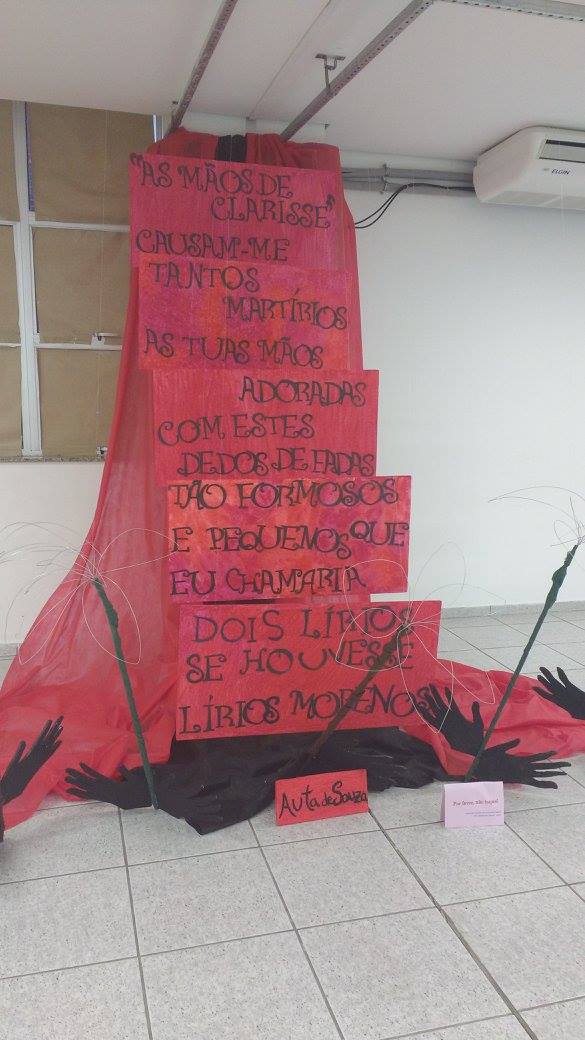 "AS MÃOS DE
CLARISSE"
CAUSAM-ME
TANTOS
MARTÍRIOS
AS TUAS MÃOS
ADORADAS
COM ESTES
DEDOS DE FADAS
TÃO FORMOSOS
E PEQUENOS QUE
EU CHAMARIA
DOIS LÍRIOS
SE HOUVESSE
LÍRIOS MORENOS
Auta de Souza
Por favor, não toque!
ELGIN